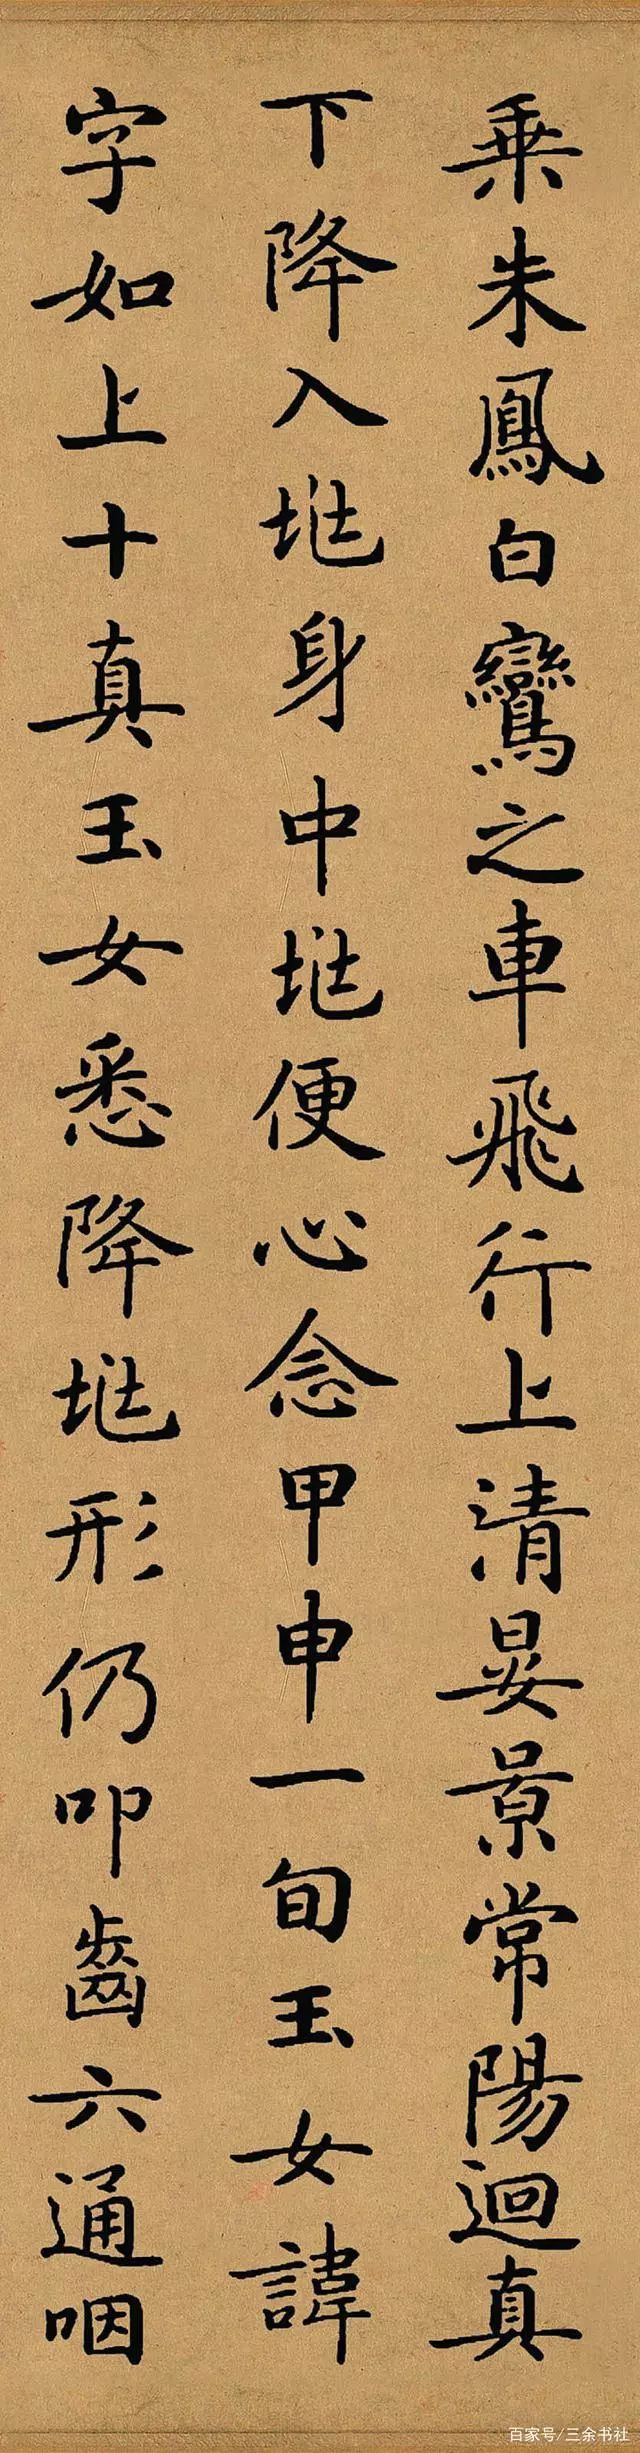 乗朱鳳白鸞之車飛行上清晏景常陽迴真
下降入兆身中兆便心念甲申一旬玉女諱
字如上十真玉女悉降兆形仍叩齒六通咽
百家号/三余书社